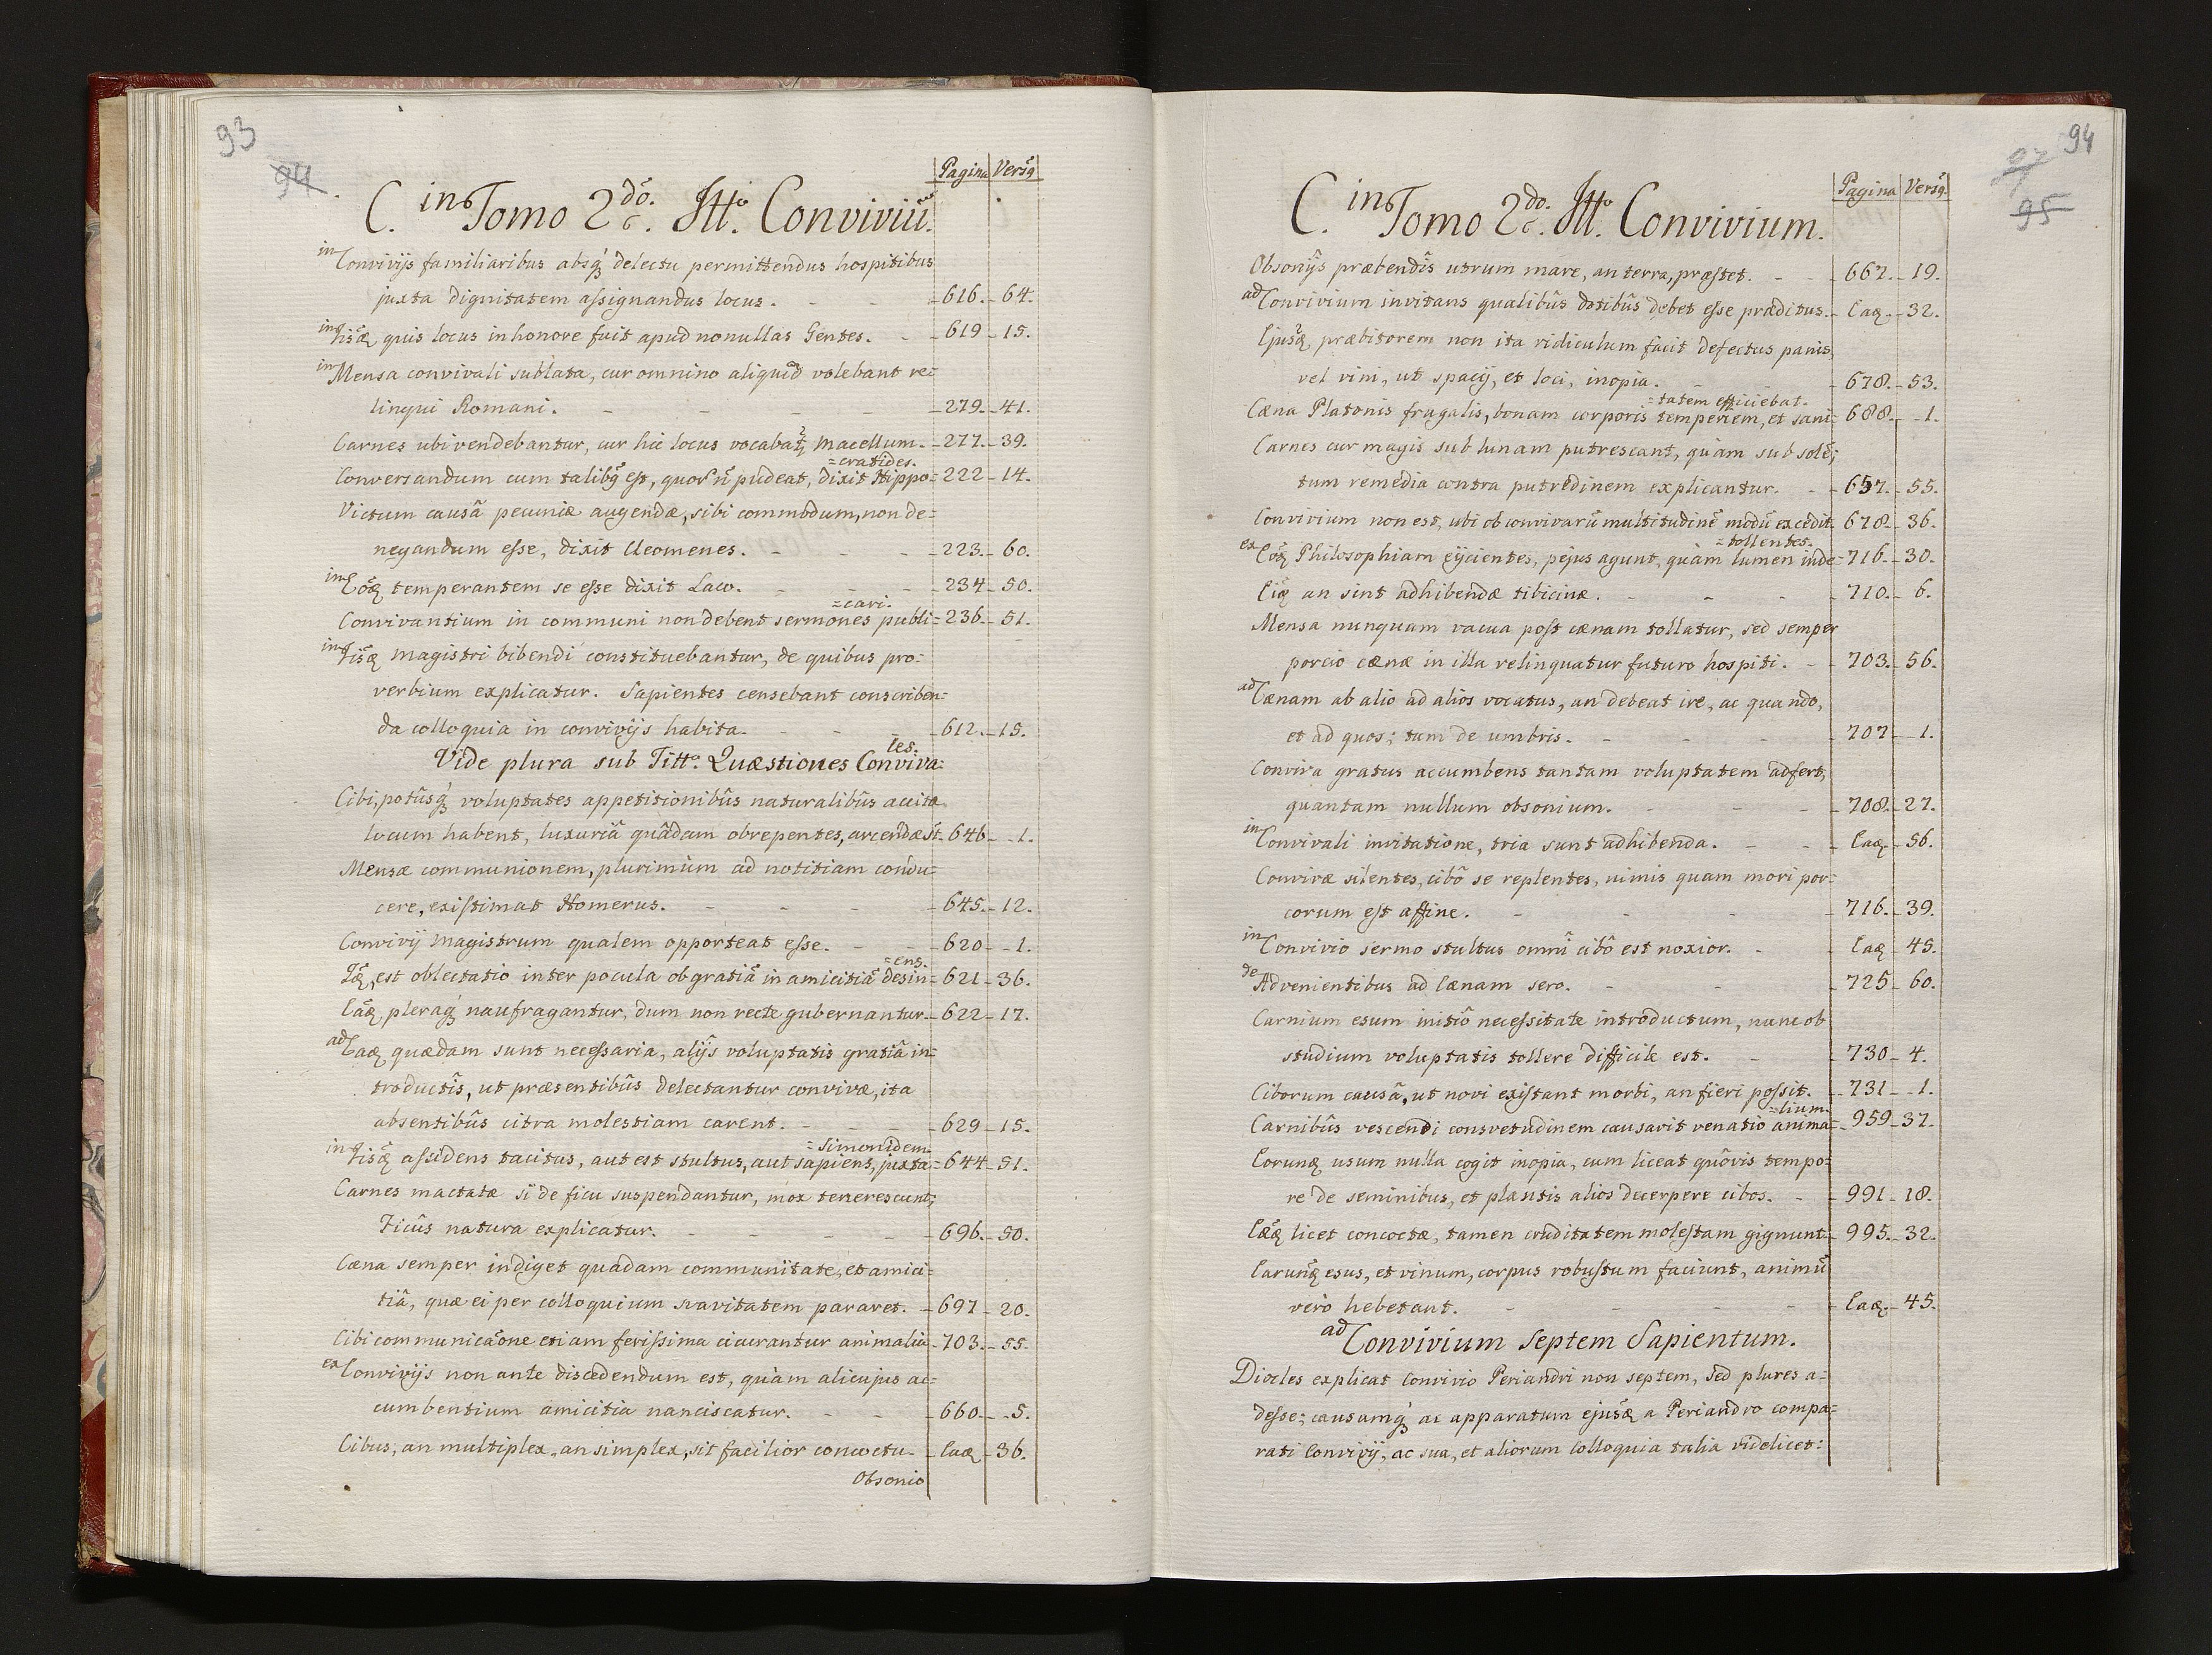 93
94
Pagina Versq
C. in Tomo 2do. Ttto. Conviviũ.
in Convivijs familiaribus absq́ delectu permittendus hospitibus
juxta dignitatem assignandus locus. - 616. - 64.
in Iisq quis locus in honore fuit apud nonullas Gentes. - 619 - 15.
in Mensa convivali sublata, cur omnino aliquid volebant re=
linqui Romani. - 279. - 41.
Carnes ubi vendebantur, cur hic locus vocabat Macellum. - 277. - 39.
=cratides.
Conversandum cum talibq est, quor ñ pudeat, dixit Hippo= 222 - 14.
Victum causâ pecuniæ augendæ, sibi commodum, non de=
negandum esse, dixit Cleomenes. - 223. - 60.
in Eoq temperantem se esse dixit Laco. - 234 - 50.
=cari.
Convivantium in communi non debent sermones publi= 236. - 51.
in Iisq Magistri bibendi constituebantur, de quibus pro=
verbium explicatur. Sapientes censebant conscriben=
da colloquia in convivijs habita. - 612. - 15.
les.
Vide plura sub Titto. Quæstiones Conviva=
Cibi, potûsq́ voluptates appetitionibûs naturalibûs accita
locum habent, luxuriâ quâdam obrepentes, arcendæ st. 646 - 1.
Mensæ communionem, plurimùm ad notitiam condu=
cere, existimat Homerus. - 645. - 12.
Convivij Magistrum qualem opporteat esse. - 620 - 1.
=ens.
Iq, est oblectatio inter pocula ob gratiã in amicitiã desin= 621 - 36.
Eaq, pleraq́ naufragantur, dum non recte gubernantur. - 622 - 17.
ad Eaq quædam sunt necessaria, alijs voluptatis gratiâ in=
troductis, ut præsentibûs delectantur convivæ, ita
absentibûs citra molestiam carent. - 629 - 15.
=Simonidem.
in Iisq assidens tacitus, aut est stultus, aut sapiens, juxta= 644 - 51.
Carnes mactatæ si de ficu suspendantur, mox tenerescunt;
Ficûs natura explicatur. - 696. - 50.
Cæna semper indiget quâdam communitate, et amici=
tiâ, quæ ei per colloquium suavitatem pararet. - 697 - 20.
Cibi communicaõne etiam ferissima cicurantur animalia - 703. - 55.
ex Convivijs non ante discedendum est, quàm alicujus ac=
cumbentium amicitia nanciscatur. - 660. - 5.
Cibus, an multiplex, an simplex, sit facilior concoctu. - Eaq - 36.
Obsonio
94
97
95
Pagina Versq.
C. in Tomo 2do. Ttto. Convivium.
Obsonijs præbendis utrum mare, an terra, præstet. - 667. - 19.
ad Convivium invitans qualibûs dotibûs debet esse præditus. - Eaq. - 32.
Ejusq, præbitorem non ita ridiculum facit defectus panis,
vel vini, ut spacij, et loci, inopia. - 678. - 53.
=tatem efficiebat.
Cæna Platonis frugalis, bonam corporis temperiem, et sani= 688. - 1.
Carnes cur magis sub lunam putrescant, quàm sub solẽ;
tum remedia contra putredinem explicantur. - 657. - 55.
Convivium non est, ubi ob convivarũ multitudinẽ modũ excedit. 678. - 36.
=tollentes.
ex Eoq Philosophiam ejicientes, pejus agunt, quàm lumen inde= 716. - 30.
Eiq an sint adhibendæ tibicinæ. - 710. - 6.
Mensa nunquam vacua post cænam tollatur, sed semper
porcio cænæ in illa relinquatur futuro hospiti. - 703. - 56.
ad Cænam ab alio ad alios vocatus, an debeat ire, ac quando,
et ad quos; tum de umbris. - 707 - 1.
Conviva gratus accumbens tantam voluptatem adfert,
quantam nullum obsonium. - 708. - 27.
in Convivali invitatione, tria sunt adhibenda. - Eaq. - 56.
Convivæ silentes, cibô se replentes, nimis quam mori por=
corum est affine. - 716. - 39.
in Convivio sermo stultus omnî cibô est noxior. - Eaq 45.
de Advenientibus ad Cænam sero. - 725 - 60.
Carnium esum initiô necessitate introductum, nunc ob
studium voluptatis tollere difficile est. - 730 - 4.
Ciborum causâ, ut novi existant morbi, an fieri possit. - 731 - 1.
=lium.
Carnibûs vescendi consvetudinem causavit venatio anima= 959 - 37.
Eorunq usum nulla cogit inopia, cum liceat quôvis tempo=
re de seminibus, et plantis alios decerpere cibos. - 991 - 18.
Eæq licet concoctæ, tamen cruditatem molestam gignunt. - 995. - 32.
Earunq esus, et vinum, corpus robustum faciunt, animũ
verò hebetant. - Eaq. - 45.
ad Convivium Septem Sapientum.
Diocles explicat Convivio Periandri non septem, sed plures a=
desse; causamq́ ac apparatum ejusq a Periandro compa=
rati Convivij, ac sua, et aliorum Colloquia talia videlicet: